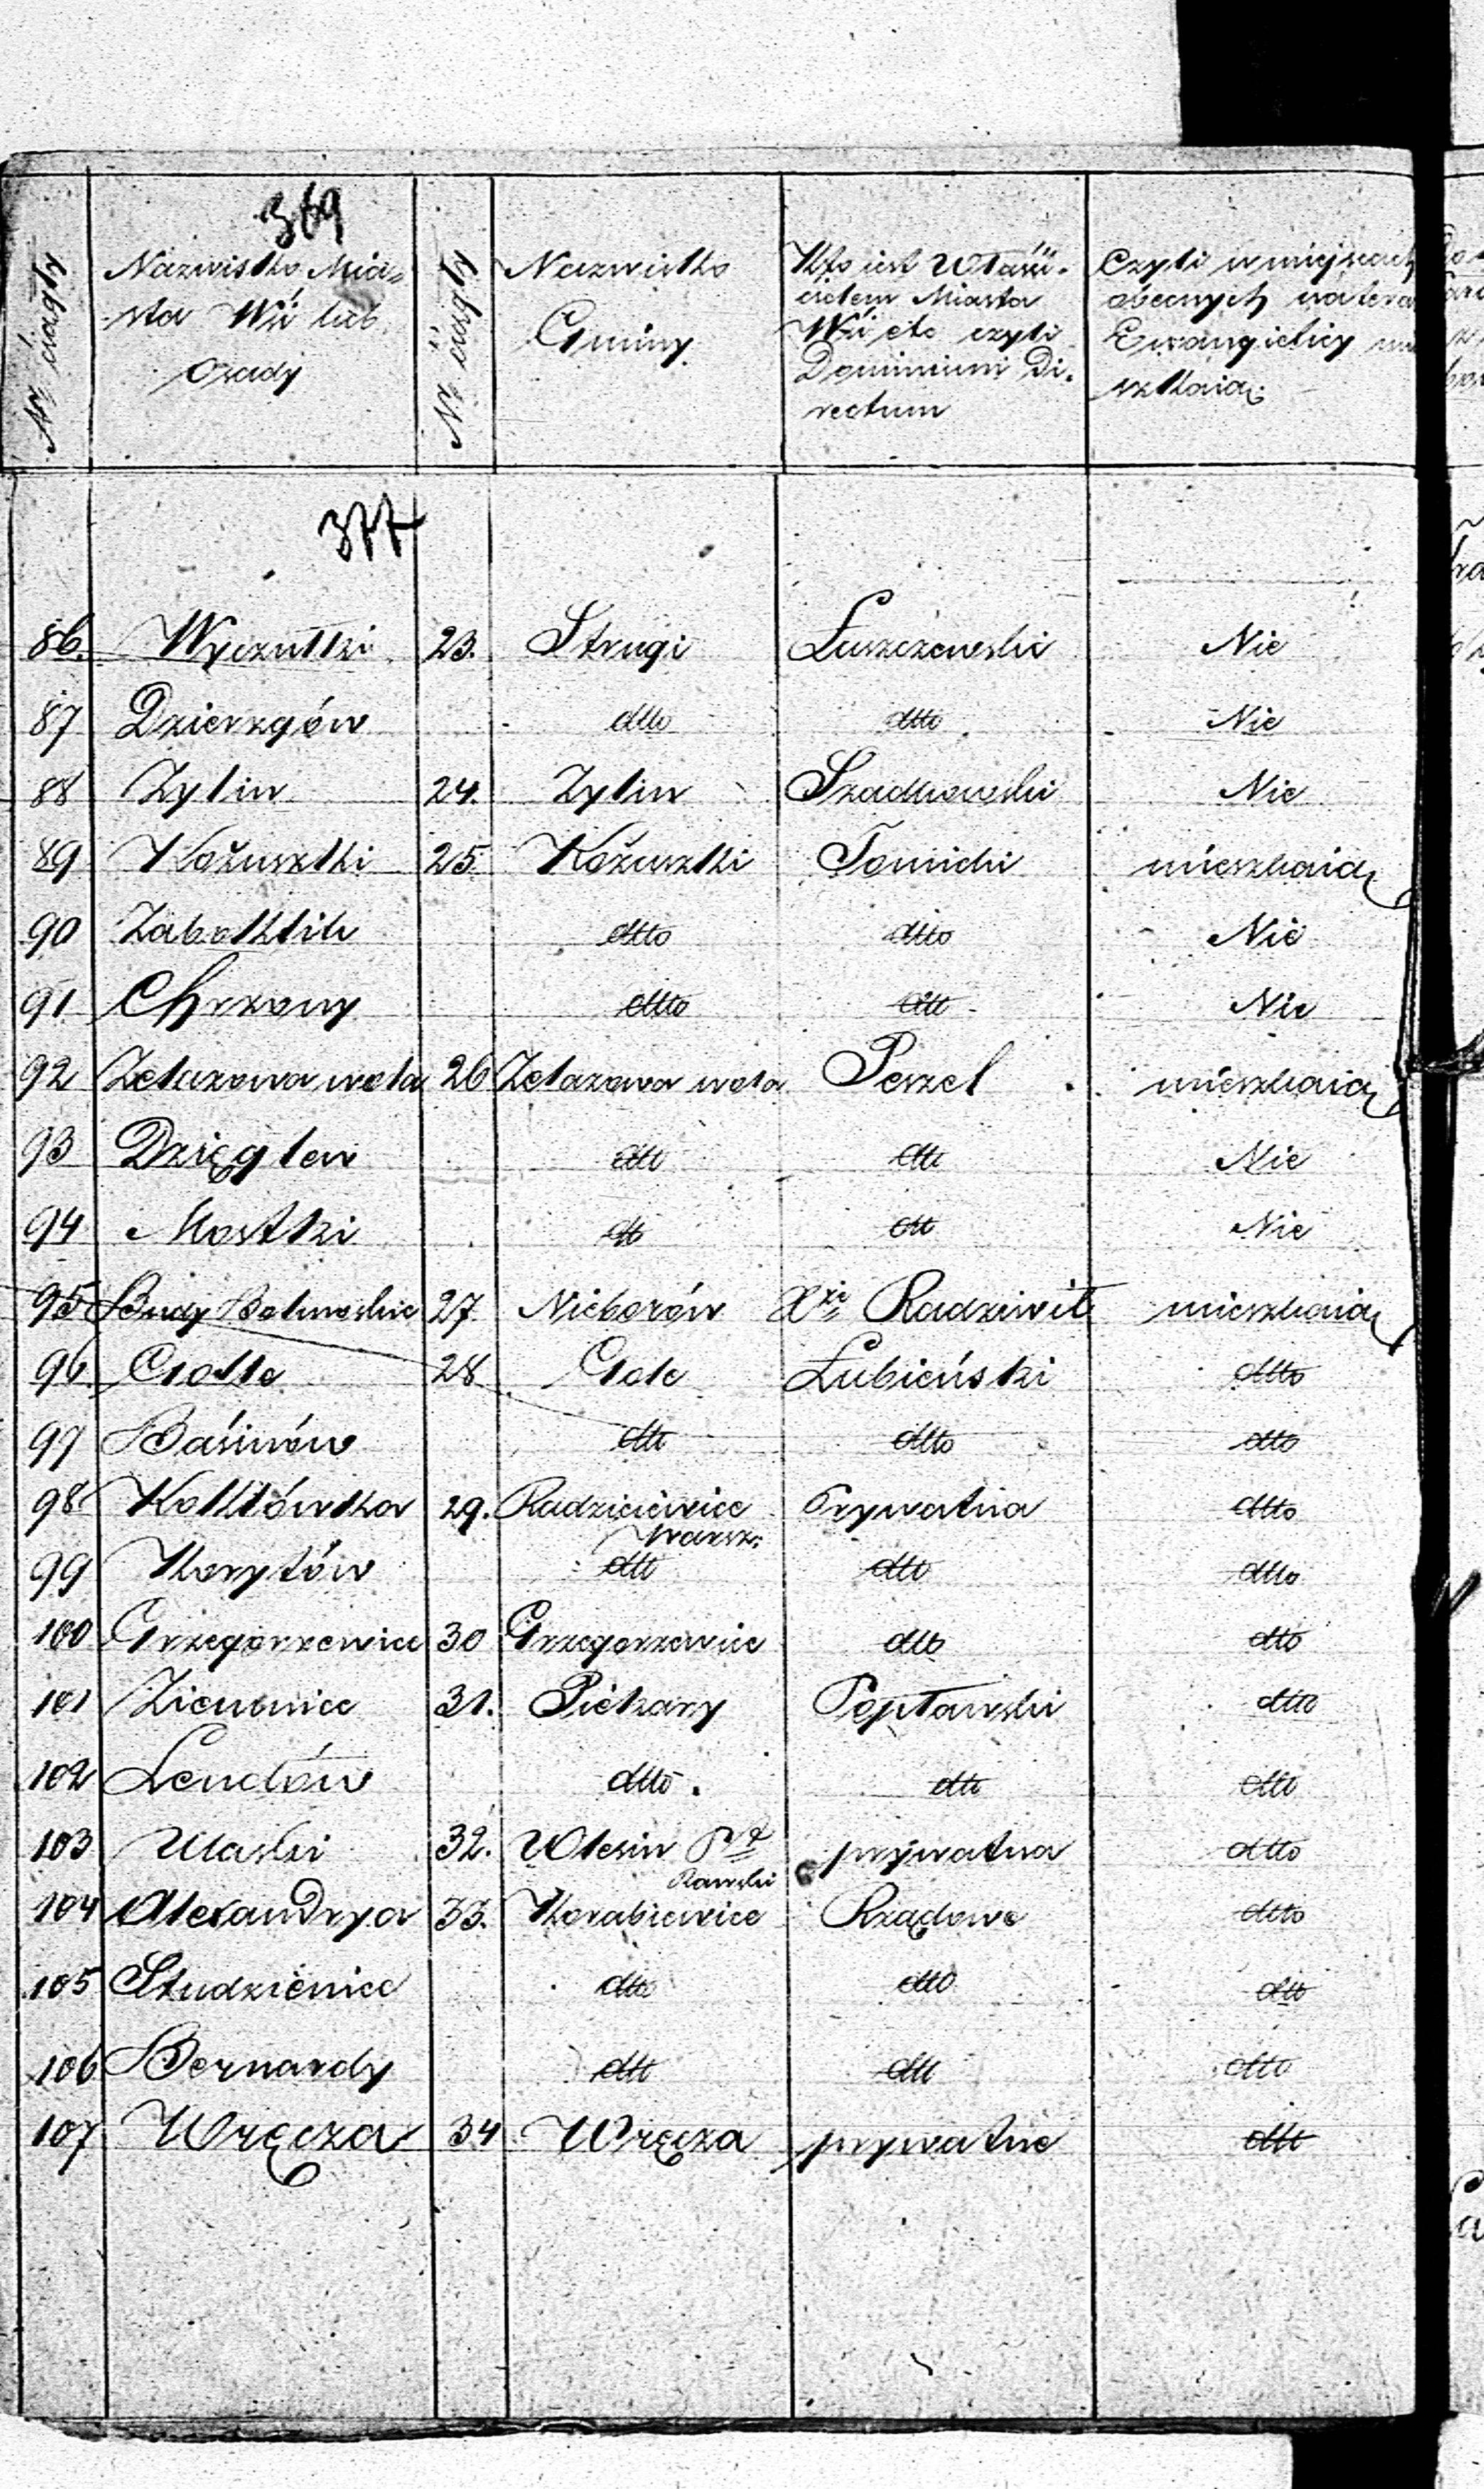 369
Nr ciągły
Nazwisko Mia-
sta Wsi lub
Osady
Nr ciągły
Nazwisko
Gminy
Kto iest Właści-
cielem Miasta
Wsi etc czyli
Dominium Di-
rectum
Czyli w mieyscach
obecnych
Ewangielicy mie
szkaią
377
86. Wyczułki 23. Strugi Łuszczewski Nie
87 Dzierzgów dtto dtto Nie
88 Zylin 24. Zylin Szadkowski Nie
89 Kożuszki 25. Kożuszki Tomicki mieszkaią
90 dtto dtto Nie
91 Chrzany dtto dtt Nie
92 Zelazowa wola 26 Zelazowa wola Peszel mieszkaią
93 Dzięglew dtt dtt Nie
94 Mostki dtt dtt Nie
95 Budy Bolimoskie 27. Nieborów Xże Radziwił mieszkaią
96 Giolle 28 Gole Łubieński dtto
97 Baśinów dtt dtto dtto
98 Kołłówka 29. Radzieiewice Prywatna dtto
Warsz:
99 Korytów dtt dtt dtto
100 Grzegorzewice 30 Grzegorzewice dtto dtto
101 Ziemnice 31. Piekary Popławski dtto
102 Lendów dtto. dtt dtt
103 Ulaski 32. Olesin Pt prywatna dtto
Rawski
104 Alexandrya 33. Korabiewice Rządowe dtto
105 Studzienice dtto dtto dtt
106 Bernardy dtt dtt dtto
107 Wręcza 34 Wręcza prywatne dtt